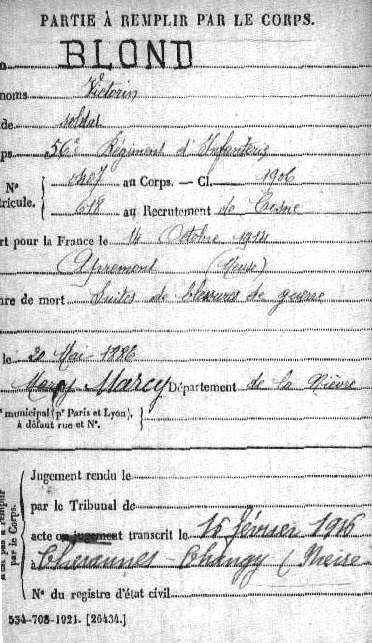 PARTIE À REMPLIR PAR LE CORPS.
BLOND
noms Victorin
de soldat
ps 56e Régiment d'Infanterie
N° au Corps. — Cl. 1906
tricule. 618 au Recrutement de Cosne
rt pour la France le 14 Octobre 1914
Apremont (Meuse)
nre de mort Suites de blessures de guerre
le 20 Mai 1886
Marcy Département de la Nièvre
municipal (pr Paris et Lyon),
à défaut rue et N°.
Jugement rendu le
par le Tribunal de
acte ou jugement transcrit le 15 février 1916
à Chevannes Changy (Nièvre
par le Corps.
N° du registre d'état civil
534-708-1921. [26434.]